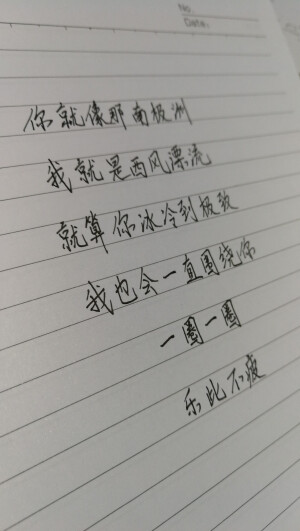 No.
Date.
你就像那南极洲
我就是西风漂流
就算你冰冷到极致
我也会一直围绕你
一圈一圈
乐此不疲